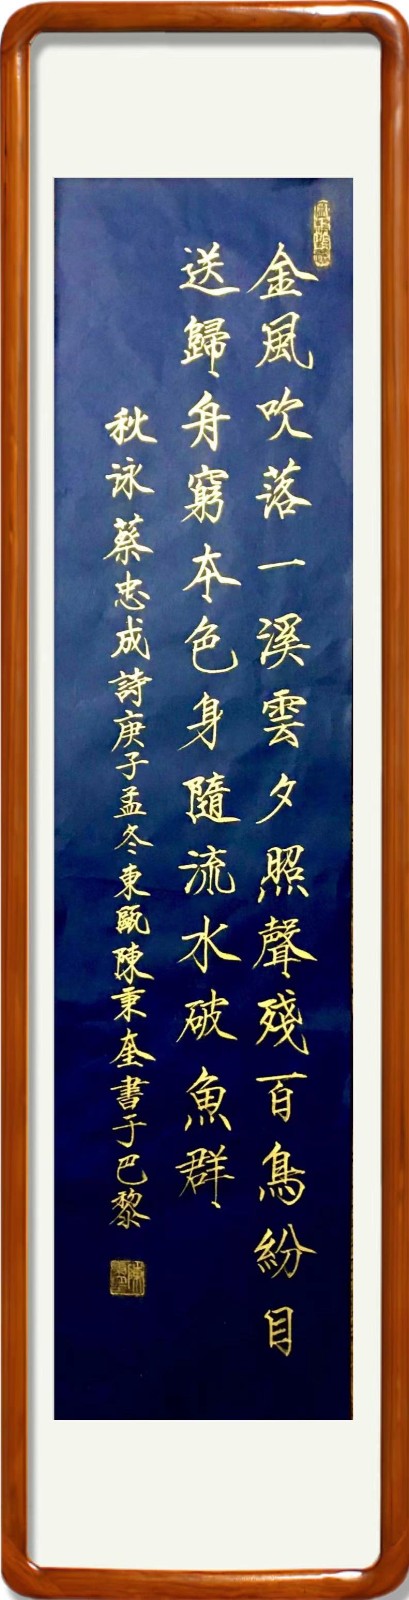 金風吹落一溪雲夕照聲殘百鳥紛目
送歸身窮本色身隨流水破魚群
秋詠蔡忠成詩庚子孟冬東甌陳秉奎書于巴黎